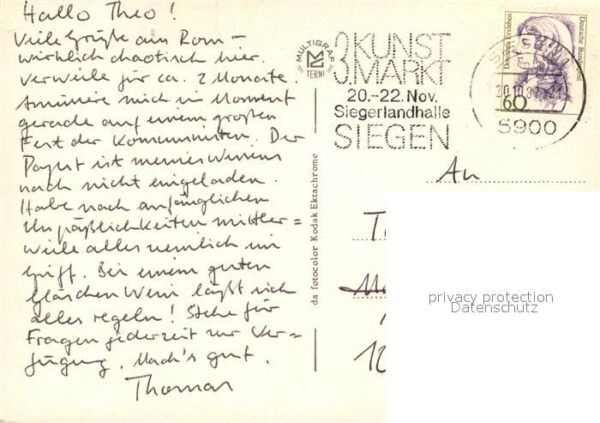 Hallo Theo!
Viele Grüße aus Rom –
wirklich chaotisch hier.
Verweile für ca. 2 Monate.
Amüsiere mich im Moment
gerade auf einem großen
Fest der Kommunisten. Der
Papst ist meines Wissens
noch nicht eingeladen.
Habe nach anfänglichen
Unpäßlichkeiten mittler=
weile alles ziemlich im
Griff. Bei einem guten
Gläschen Wein läßt sich
alles regeln! Stehe für
Fragen jederzeit zur Ver=
fügung. Mach's gut.
Thomas
MULTIGRAF
TERNI
da fotocolor Kodak Ektachrome
3.KUNST
3.MARKT
20.-22. Nov.
Siegerlandhalle
SIEGEN
Deutsche Bundespost
60
5900
An
privacy protection
Datenschutz